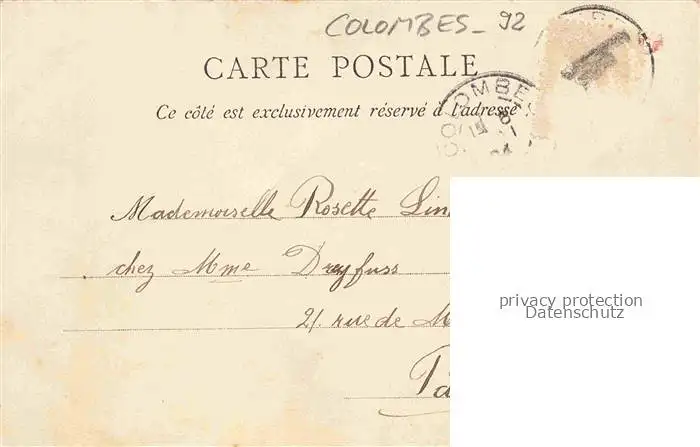 COLOMBES_92
CARTE POSTALE
Ce côté est exclusivement réservé à l'adresse
COLOMBES
Mademoiselle Rosette Lin
chez Mme Dreyfuss
21. rue de M
privacy protection
Datenschutz